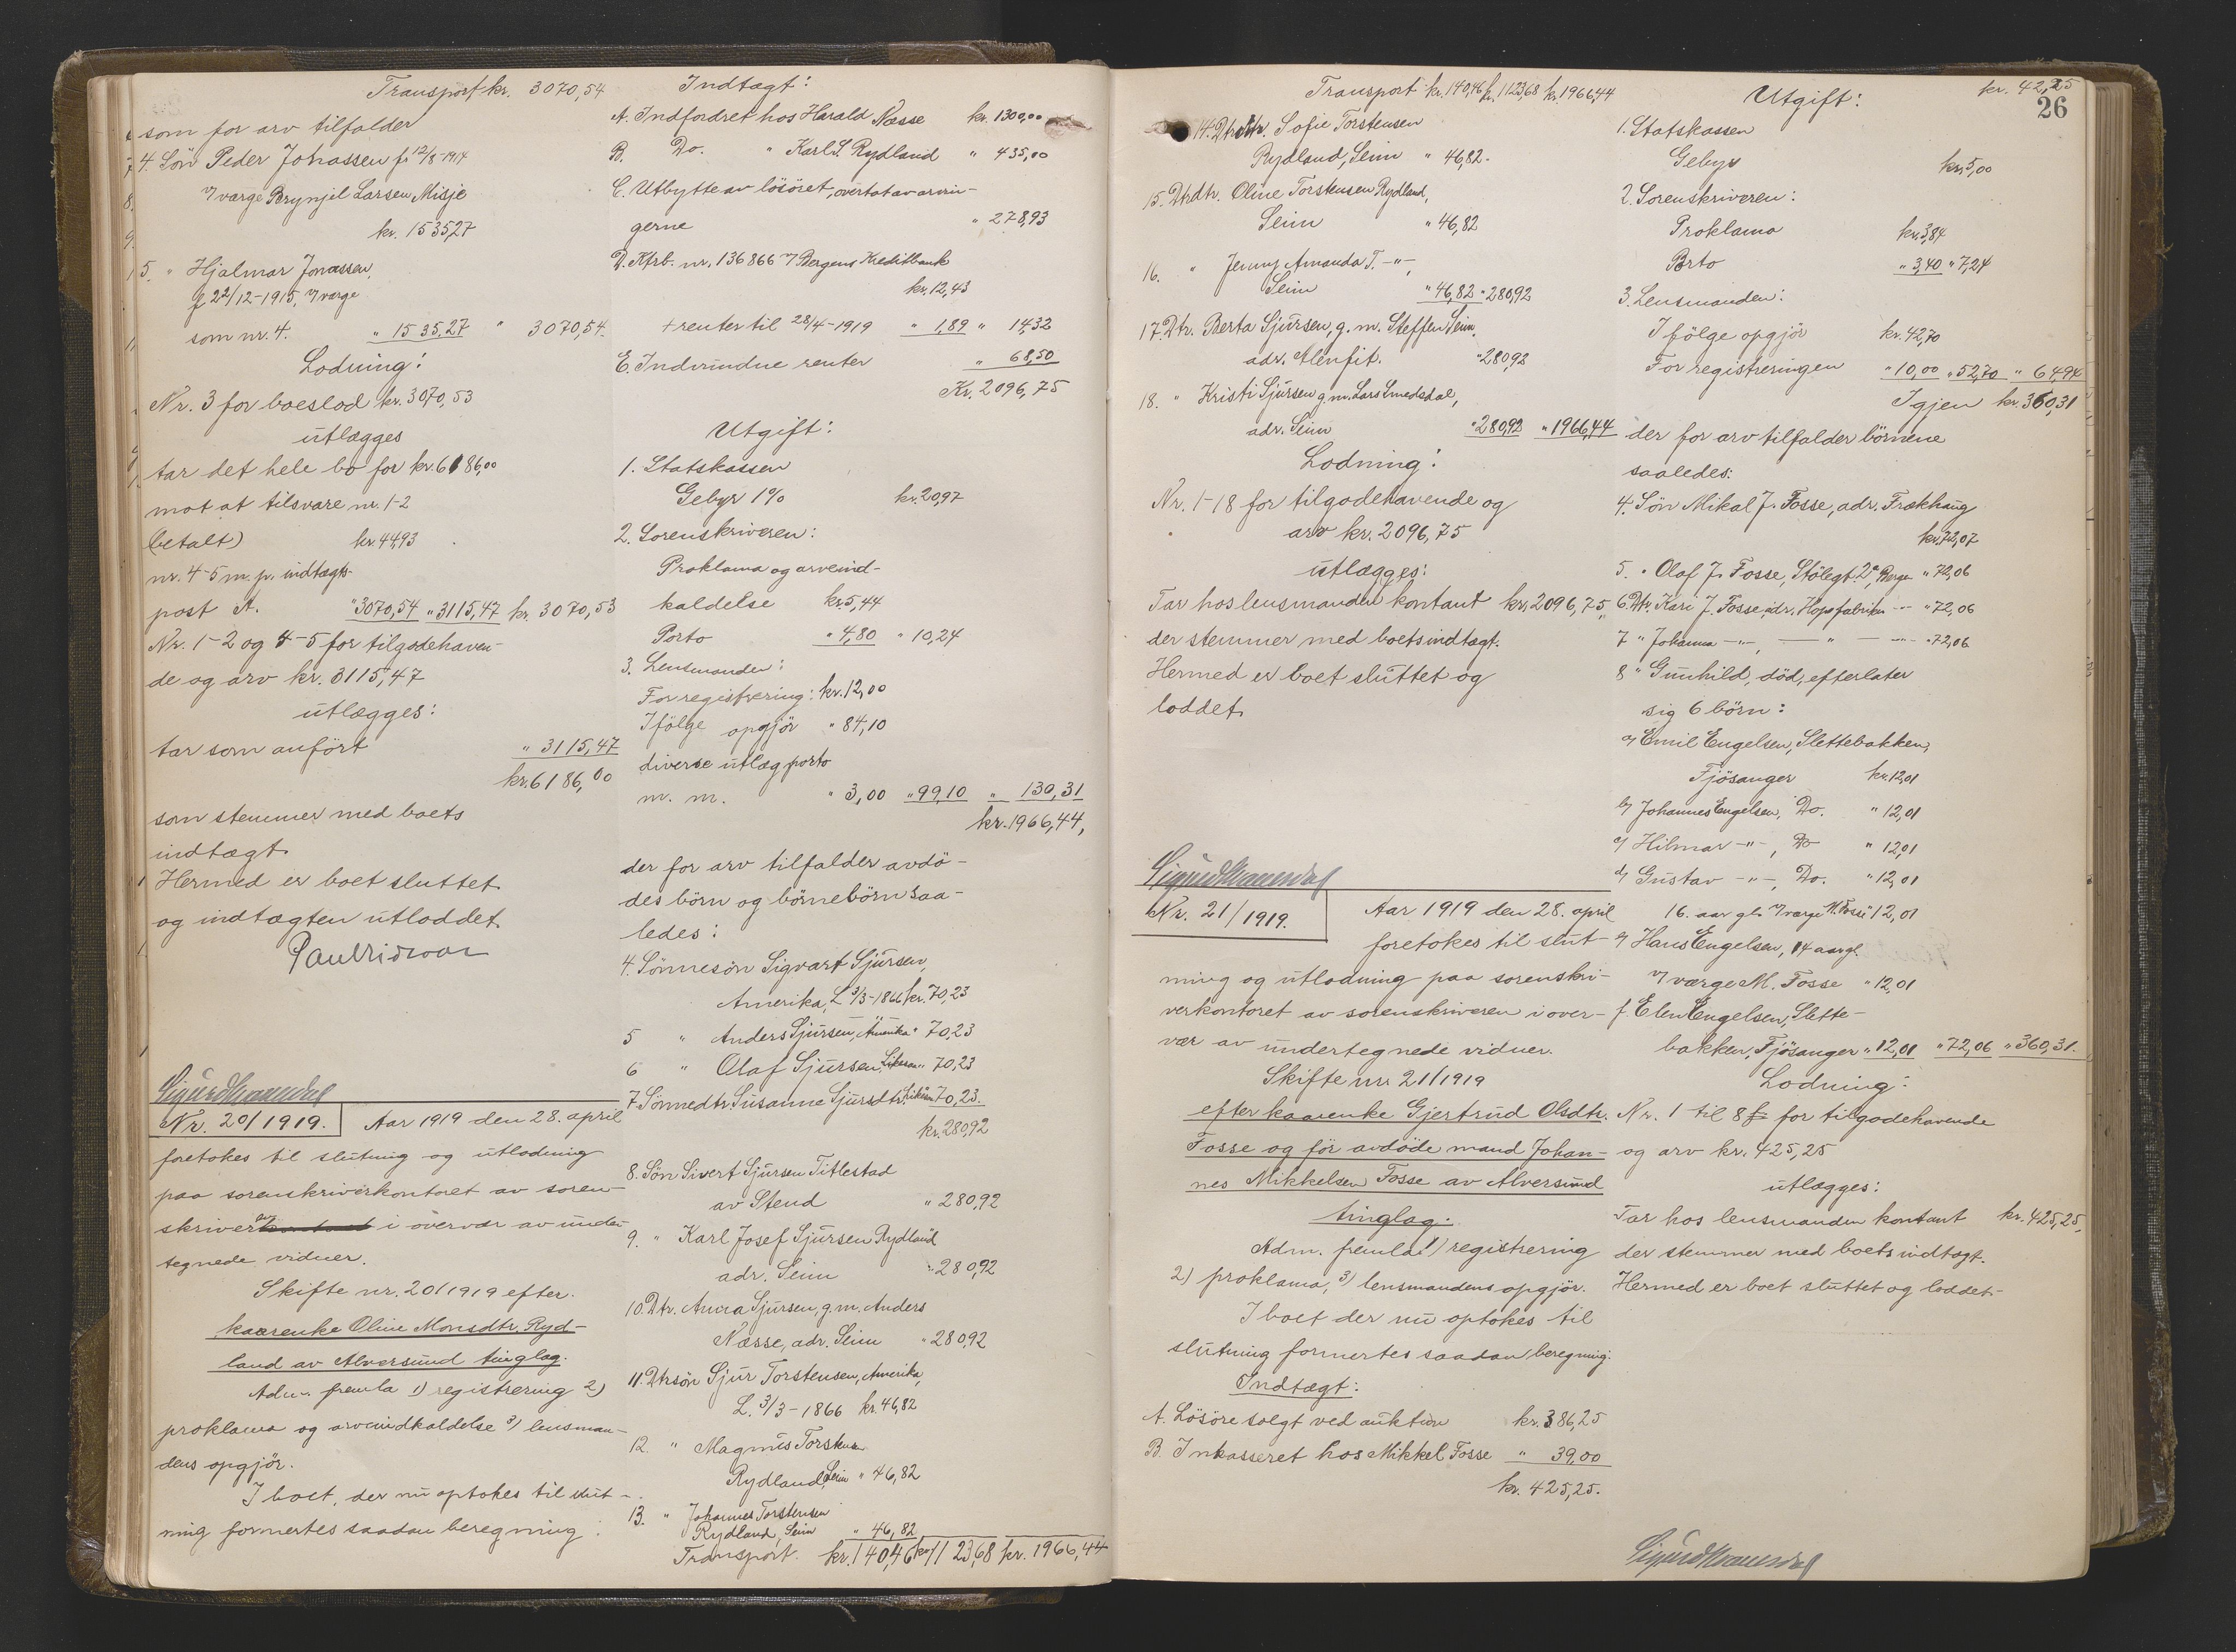 Transport kr. 3070,54
som for arv tilfalder
4. Sön Peder Johassen f. 12/8-1914
v/værge Brynjel Larsen Misje
kr. 1535,27
5. " Hjalmar Jonassen,
f. 22/12-1915, v/værge
som nr. 4. " 1535,27 " 3070,54
Lodning:
Nr. 3 for boeslod kr. 3070,53
utlægges
tar det hele bo for kr. 6186,00
mot at tilsvare nr. 1-2
(betalt) kr. 44,93
nr. 4-5 m. p. indtægts-
post A. " 3070,54 " 3115,47 kr. 3070,53
Nr. 1-2 og 4-5 for tilgodehaven-
de og arv kr. 3115,47
utlægges:
tar som anført " 3115,47
kr. 6186,00
som stemmer med boets
indtægt.
Hermed er boet sluttet
og indtægten utloddet.
Nr. 20/1919. Aar 1919 den 28. april
foretokes til slutning og utlodning
paa sorenskriverkontoret av soren-
skriveren i overvær av under-
tegnede vidner.
Skifte nr. 20/1919 efter
kaarenke Oline Monsdtr. Ryd-
land av Alversund tinglag.
Adm. fremla 1) registrering 2)
proklama og arveindkaldelse 3) lensman-
dens opgjör.
I boet, der nu optokes til slut-
ning formertes saadan beregning:
Indtægt:
A. Indfordret hos Harald Næsse kr. 1300,00
B. Do. " Karl S. Rydland " 435,00
C. Utbytte av lösöret, overtat av arvin-
gerne " 278,93
D. Kfrb. nr. 136866 v/ Bergens Kreditbank
kr. 12,43
+ renter til 28/4-1919 " 1,89 " 14,32
E. Indvundne renter " 68,50
Kr. 2096,75
Utgift:
1. Statskassen
Gebyr 1% kr. 20,97
2. Sorenskriveren:
Proklama og arveind-
kaldelse kr. 5,44
Porto " 4,80 " 10,24
3. Lensmanden:
For registrering: kr. 12,00
Ifölge opgjör " 84,10
diverse utlæg porto
m. m. " 3,00 " 99,10 " 130,31
kr. 1966,44,
der for arv tilfalder avdö-
des börn og börnebörn saa-
ledes:
4. Sönnesön Sigvart Sjursen,
Amerika, L. 3/3-1866 kr. 70,23
5 " Anders Sjursen, Amerika " 70,23
6 " Olaf Sjursen, " 70,23
7. Sönnedtr. Susanne Sjursdtr. 70,23.
kr. 280,92
8. Sön Sivert Sjursen Titlestad
av Stend " 280,92
9. " Karl Josef Sjursen Rydland
adr. Seim " 280,92
10. Dtr. Anna Sjursen, g. m. Anders
Næsse, adr. Seim " 280,92
11. Dtrsön Sjur Torstensen, Amerika,
L. 3/3-1866 kr. 46,82
12. " Magnus Torstens.
Rydland, Seim " 46,82
13. " Johannes Torstensen
Rydland, Seim " 46,82
Transport. kr. 140,46 kr. 1123,68 kr. 1966,44
Transport kr. 140,46 kr. 1123,68 kr. 1966,44
14. Dtrdtr. Sofie Torstensen
Rydland, Seim " 46,82.
15. Dtrdtr. Oline Torstensen Rydland,
Seim " 46,82
16. " Jenny Amanda T. -"-,
Seim " 46,82 " 280,92
17. Dtr. Berta Sjursen, g. m. Steffen Seim,
adr. Alenfit. " 280,92
18. " Kristi Sjursen g. m. Lars Smedsdal,
adr. Seim " 280,92 " 1966,44
Lodning:
Nr. 1-18 for tilgodehavende og
arv kr. 2096,75
utlægges:
Tar hos lensmanden kontant kr. 2096,75,
der stemmer med boets indtægt.
Hermed er boet sluttet og
loddet.
Nr. 21/1919. Aar 1919 den 28. april
foretokes til slut-
ning og utlodning paa sorenskri-
verkontoret av sorenskriveren i over-
vær av undertegnede vidner.
Skifte nr. 21/1919
efter kaarenke Gjertrud Olsdtr.
Fosse og för avdöde mand Johan-
nes Mikkelsen Fosse av Alversund
tinglag.
Adm. fremla 1) registrering
2) proklama, 3) lensmandens opgjör.
I boet der nu optokes til
slutning formertes saadan beregning.
Indtægt:
A. Lösöre solgt ved auktion kr. 386,25
B. Inkasseret hos Mikkel Fosse " 39,00
kr. 425,25.
kr. 42,25
26
Utgift:
1. Statskassen
Gebyr kr. 5,00
2. Sorenskriveren:
Proklama kr. 3,84
Porto " 3,40 " 7,24
3. Lensmanden:
I fölge opgjör kr. 42,70
For registreringen " 10,00 " 52,70 " 64,94
Igjen kr. 360,31
der for arv tilfalder börnene
saaledes:
4. Sön Mikal J. Fosse, adr. Frækhaug
kr. 72,07
5. " Olaf J. Fosse, Stölegt. 2a Bergen " 72,06
6. Dtr. Kari J. Fosse, adr. Hopsfabriken -"- " 72,06
7 " Johanna -"-, — " — -"- " 72,06
8 " Gunhild, död, efterlater
sig 6 börn:
a) Emil Engelsen, Slettebakken,
Fjösanger kr. 12,01
b) Johannes Engelsen, Do. " 12,01
c) Hilmar -"-, Do " 12,01
d) Gustav -"-, Do. " 12,01
16. aar gl. v/værge M. Fosse " 12,01
e) Hans Engelsen, 14 aar gl.
v/værge M. Fosse " 12,01
f. Elen Engelsen, Slette-
bakken, Fjösanger " 12,01 " 72,06 " 360,31.
Lodning:
Nr. 1 til 8 f for tilgodehavende
og arv kr. 425,25
utlægges:
Tar hos lensmanden kontant kr. 425,25,
der stemmer med boets indtægt.
Hermed er boet sluttet og loddet.